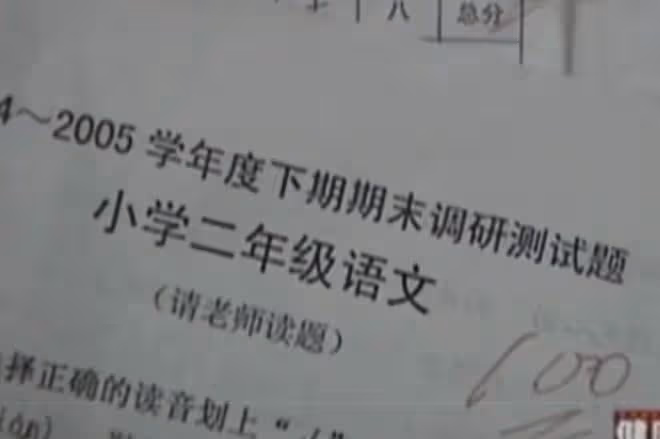 八 总分
4～2005 学年度下期期末调研测试题
小学二年级语文
（请老师读题）
100
择正确的读音划上“